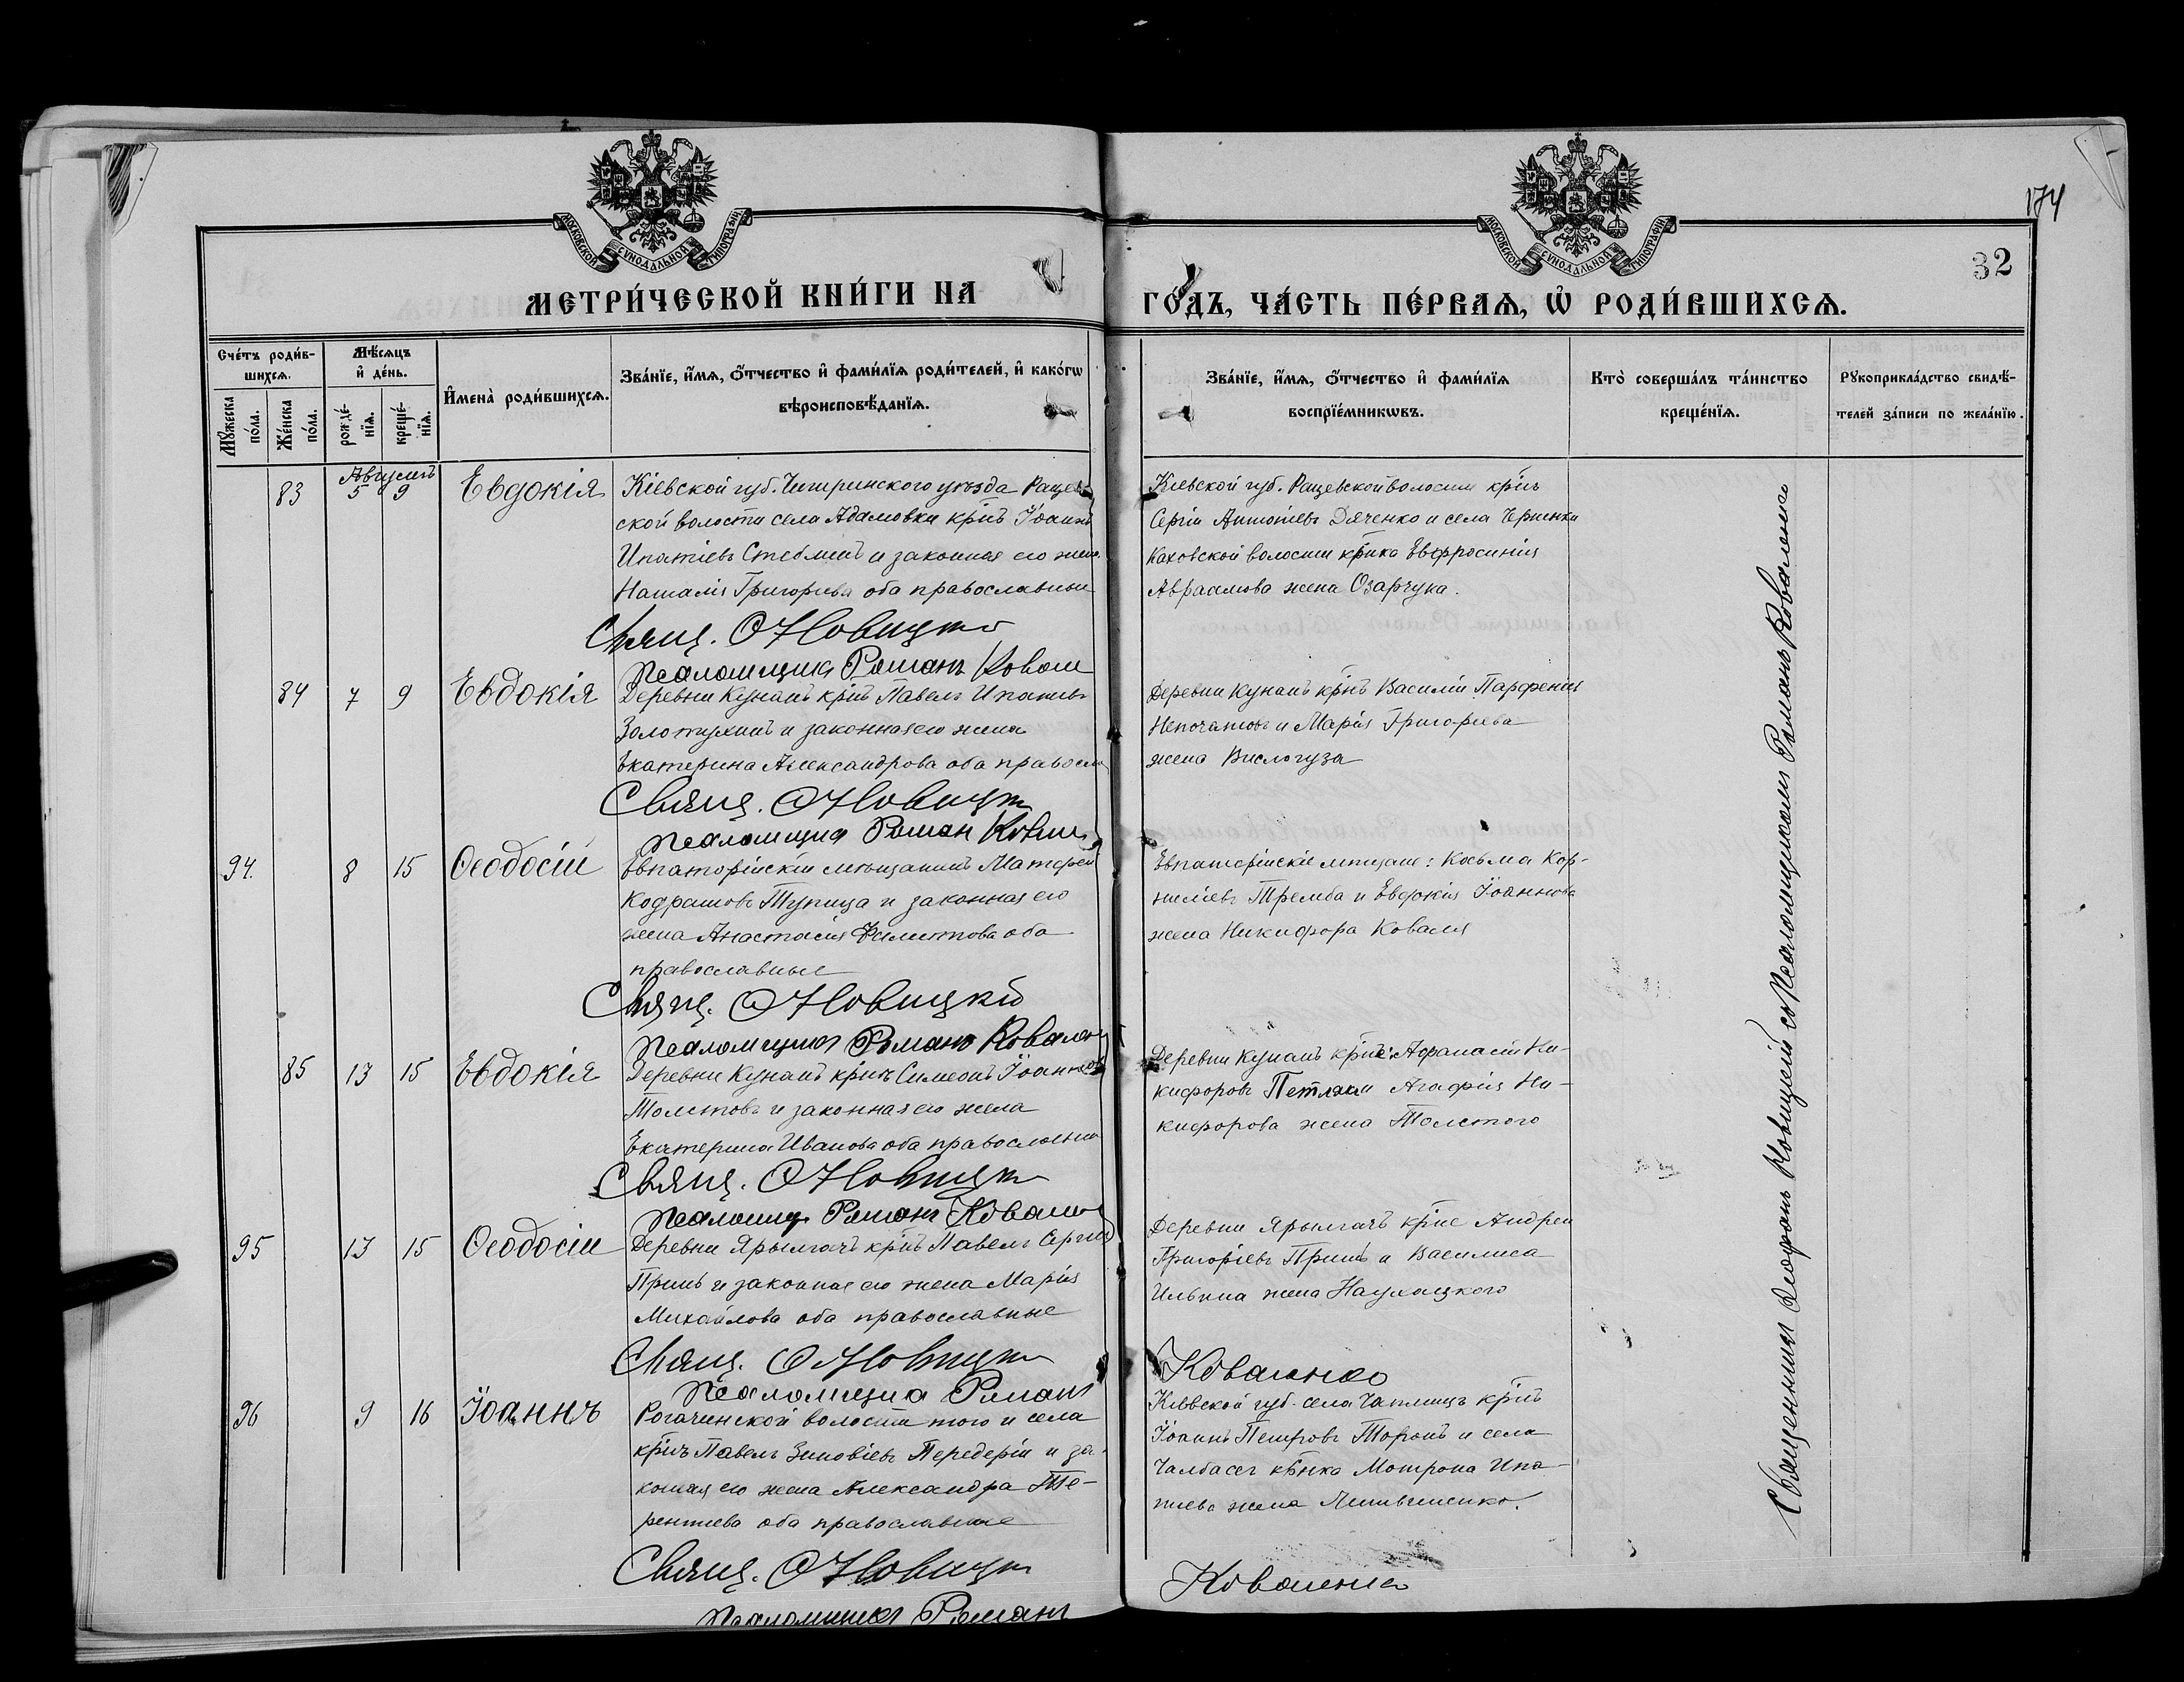 174
32
МОСКОВСКОЙ СѴНОДАЛЬНОЙ ТИПОГРАФІИ
МОСКОВСКОЙ СѴНОДАЛЬНОЙ ТИПОГРАФІИ
МЕТРИ́ЧЕСКОЙ КНИ́ГИ НА
ГО́ДЪ, ЧА́СТЬ ПЕ́РВАѦ, Ѡ҆ РОДИ́ВШИХСѦ.
Сче́тъ роди́в-
шихсѧ.
Мꙋ́жеска по́ла.
Же́нска по́ла.
Мѣ́сѧцъ
и҆ де́нь.
рожде́-
нїѧ.
креще́-
нїѧ.
И҆мена̀ роди́вшихсѧ.
Зва́нїе, и҆́мѧ, ѻ҆́тчество и҆ фами́лїѧ роди́телей, и҆ како́гѡ
вѣроисповѣ́данїѧ.
Зва́нїе, и҆́мѧ, ѻ҆́тчество и҆ фами́лїѧ
воспрїе́мникѡвъ.
Кто̀ соверша́лъ та́инство
креще́нїѧ.
Рꙋкоприкла́дство свидѣ́-
телей за́писи по жела́нїю.
Августъ
83 5 9 Евдокія
Кіевской губ. Чигиринского уѣзда Рацев-
ской волости села Адамовки крнъ Іоаннъ
Ипатіевъ и законная его жена
Наталія Григорьева оба православные
Свящ. Ѳ Новицкій
Псаломщикъ Романъ Ковал
Кіевской губ. Рацевской волости крнъ
Сергій Антоніевъ Дяченко и села Черненки
Каховской волости крнка Евфросинія
Авраамова жена Озарчука.
84 7 9 Евдокія
Деревни Кунанъ крнъ Павелъ Ипатьевъ
Золотухинъ и законная его жена
Екатерина Александрова оба правосл
Свящ. Ѳ Новицкій
Псаломщикъ Роман Ковал
Деревни Кунанъ крнъ Василій Парфеніевъ
Непочатовъ и Марія Григорьева
жена Вислогуза
94. 8 15 Ѳеодосій
Евпаторійскій мѣщанинъ Матфей
Кодратовъ Тупица и законная его
жена Анастасія Филиппова оба
православные
Свящ. Ѳ Новицкій
Псаломщикъ Романъ Ковален
Евпаторійскіе мѣщане: Косьма Кор-
ниліевъ Тремба и Евдокія Іоаннова
жена Никифора Коваля
85 13 15 Евдокія
Деревни Кунанъ крнъ Симеонъ Іоанновъ
Толстовъ и законная его жена
Екатерина Иванова оба православные
Свящ. Ѳ Новицкій
Псаломщ Романъ Ковален
Деревни Кунанъ крне: Афанасій Ни-
кифоровъ и Агафія Ни-
кифорова жена Толстого
95 13 15 Ѳеодосій
Деревни Ярылгачъ крнъ Павелъ Сергіевъ
и законная его жена Марія
Михайлова оба православные
Свящ. Ѳ Новицкій
Псаломщика Романъ
Деревни Ярылгачъ крне Андрей
Григоріевъ и Василиса
Ильина жена
Коваленко
96 9 16 Іоаннъ
Рогачинской волости того и села
крнъ Павелъ Зиновіевъ Передерій и за-
конная его жена Александра Те-
рентіева оба православные
Свящ. Ѳ Новицкій
Псаломщикъ Романъ
Кіевской губ. села Чаплищъ крнъ
Іоаннъ Петровъ и села
Чалбасъ крнка Мотрона Ипа-
тіева жена Литвиненко.
Коваленко
Священникъ Новицкій съ Псаломщикомъ Романъ Коваленко